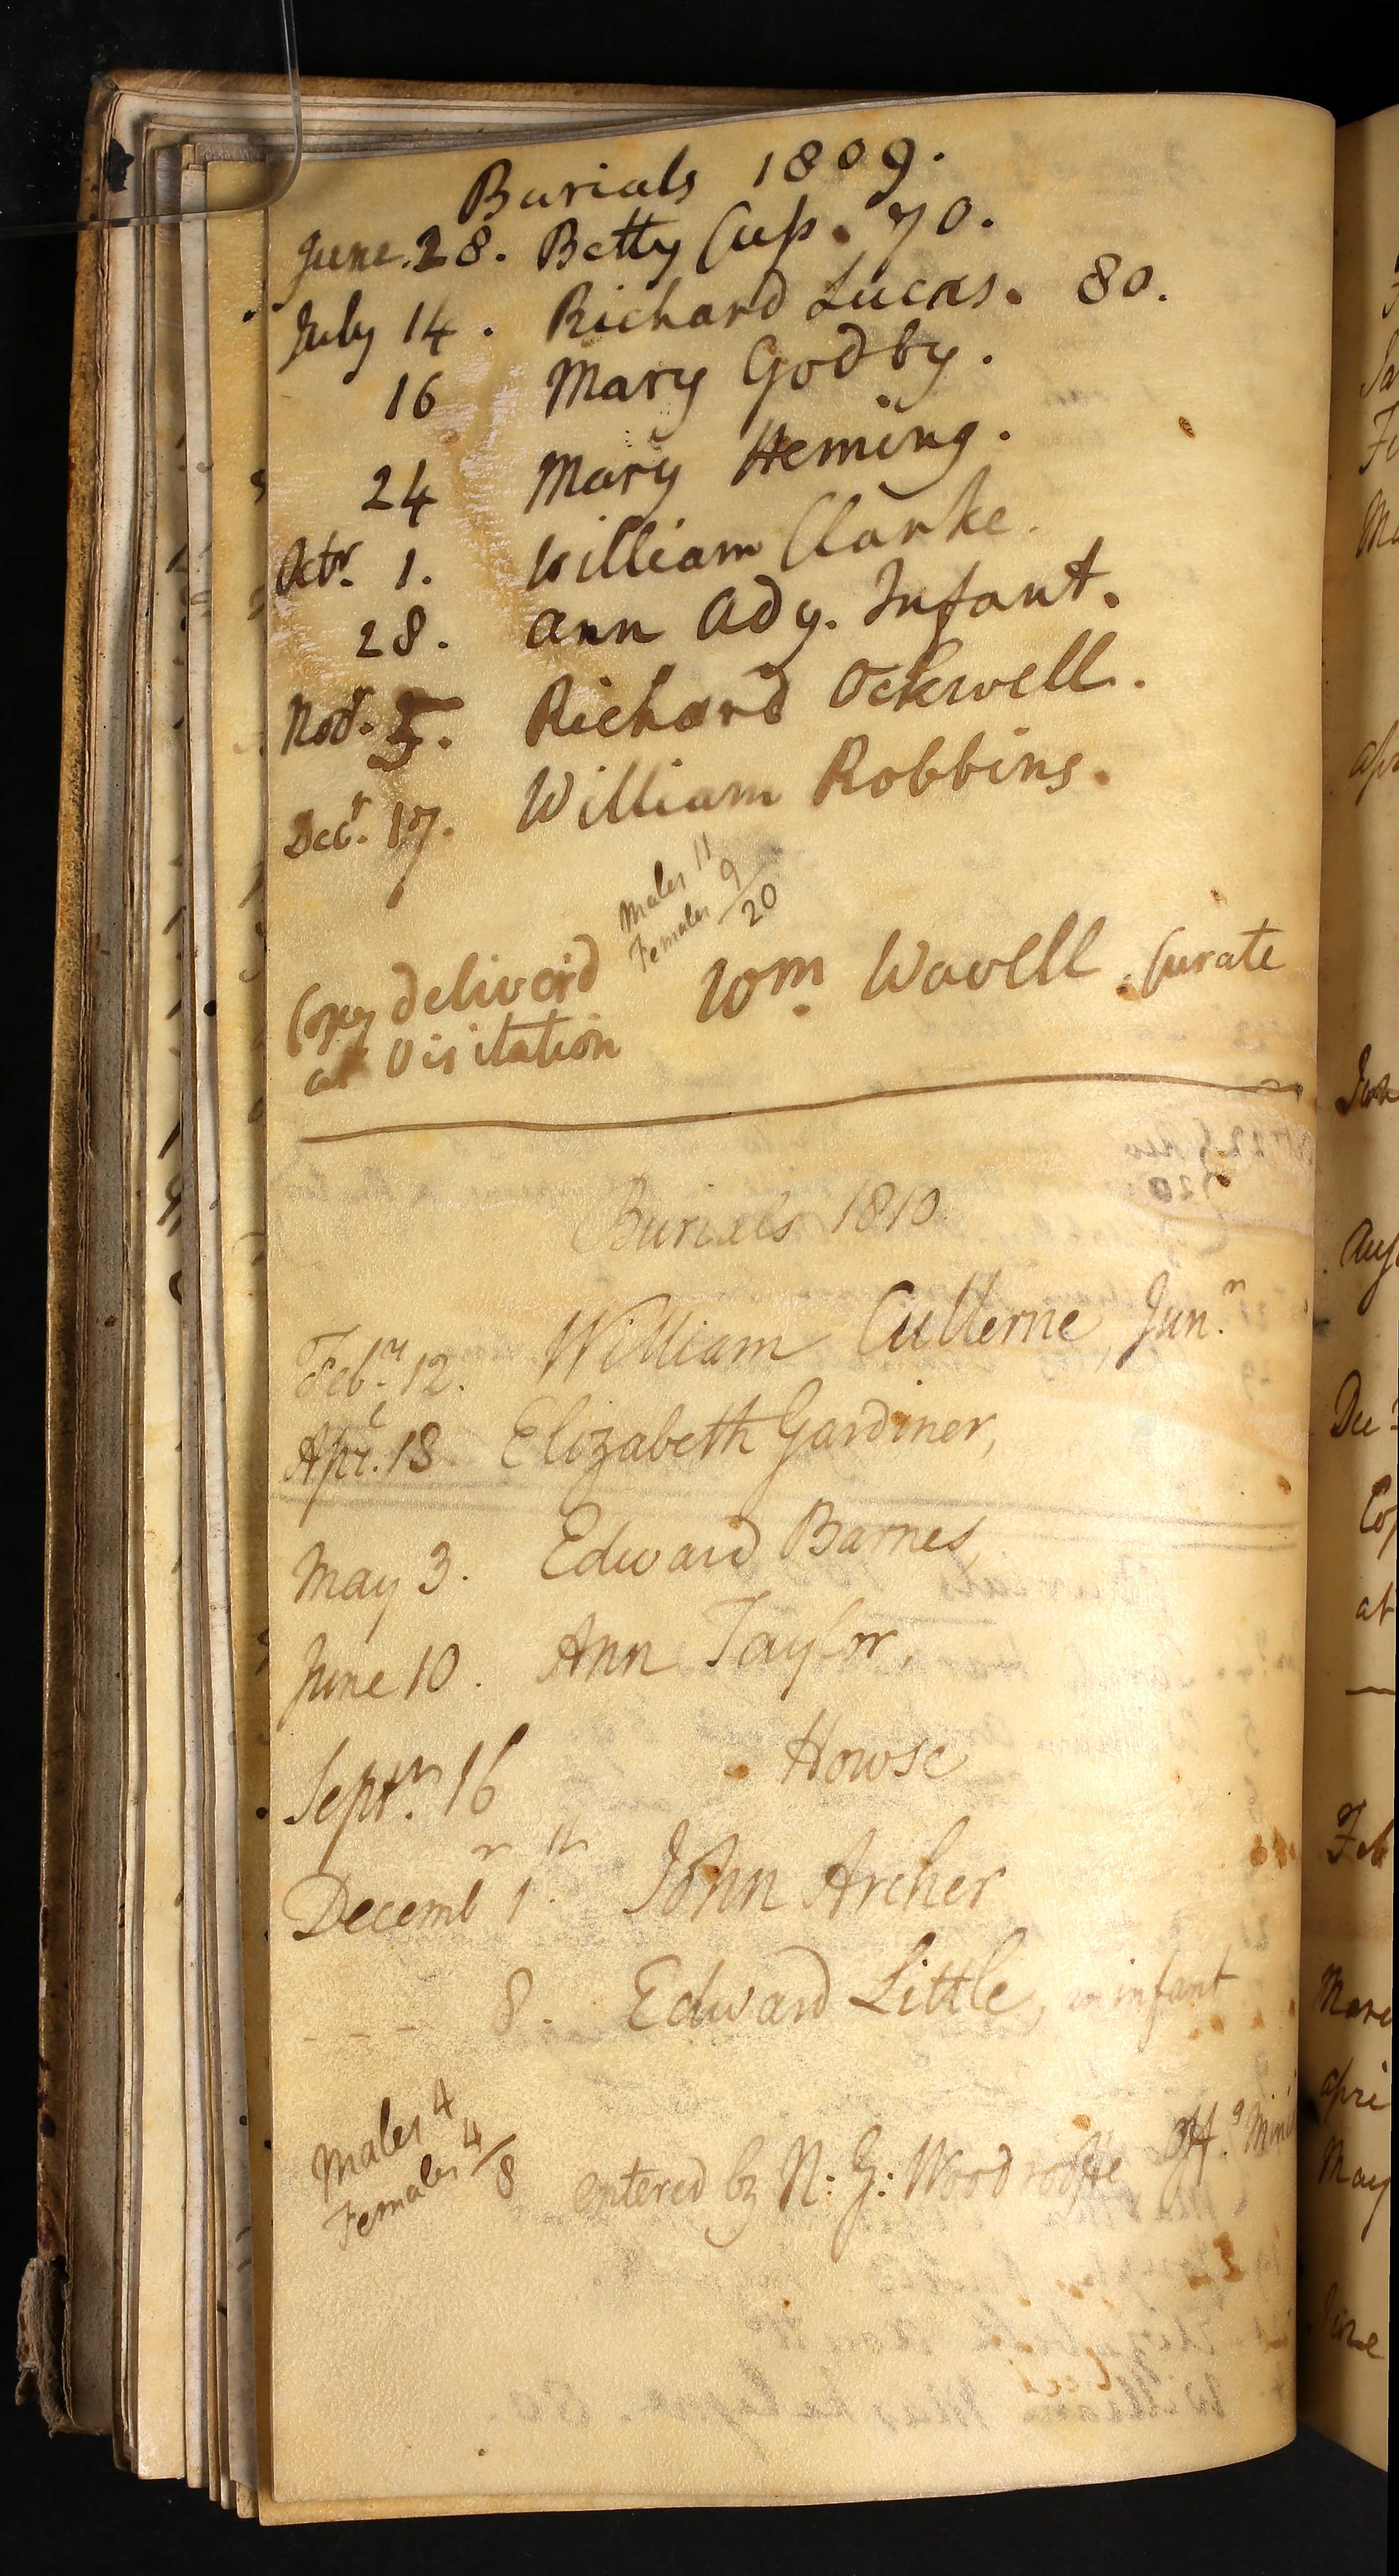 Burials 1809.
June. 28. Betty Cuss. 70.
July 14. Richard Lucas. 80.
16 Mary Godby.
24 Mary Heming.
Octr. 1. William Clarke.
28. Ann Ady. Infant.
Novr. 5. Richard Ockwell.
Decr. 17. William Robbins.
Males 11
Females 9
20
Copy deliverd
at Visitation
Wm. Wavell. Curate
Burials 1810
Feby. 12. William Cullerne, Junr.
Apr. 18 Elizabeth Gardiner,
May 3. Edward Barnes,
June 10. Ann Taylor,
Septr. 16 Howse
Decembr 1st. John Archer
8. Edward Little, an infant
Males 4
Females 4
8
entered by N: G: Woodrooffe Offg. Mini